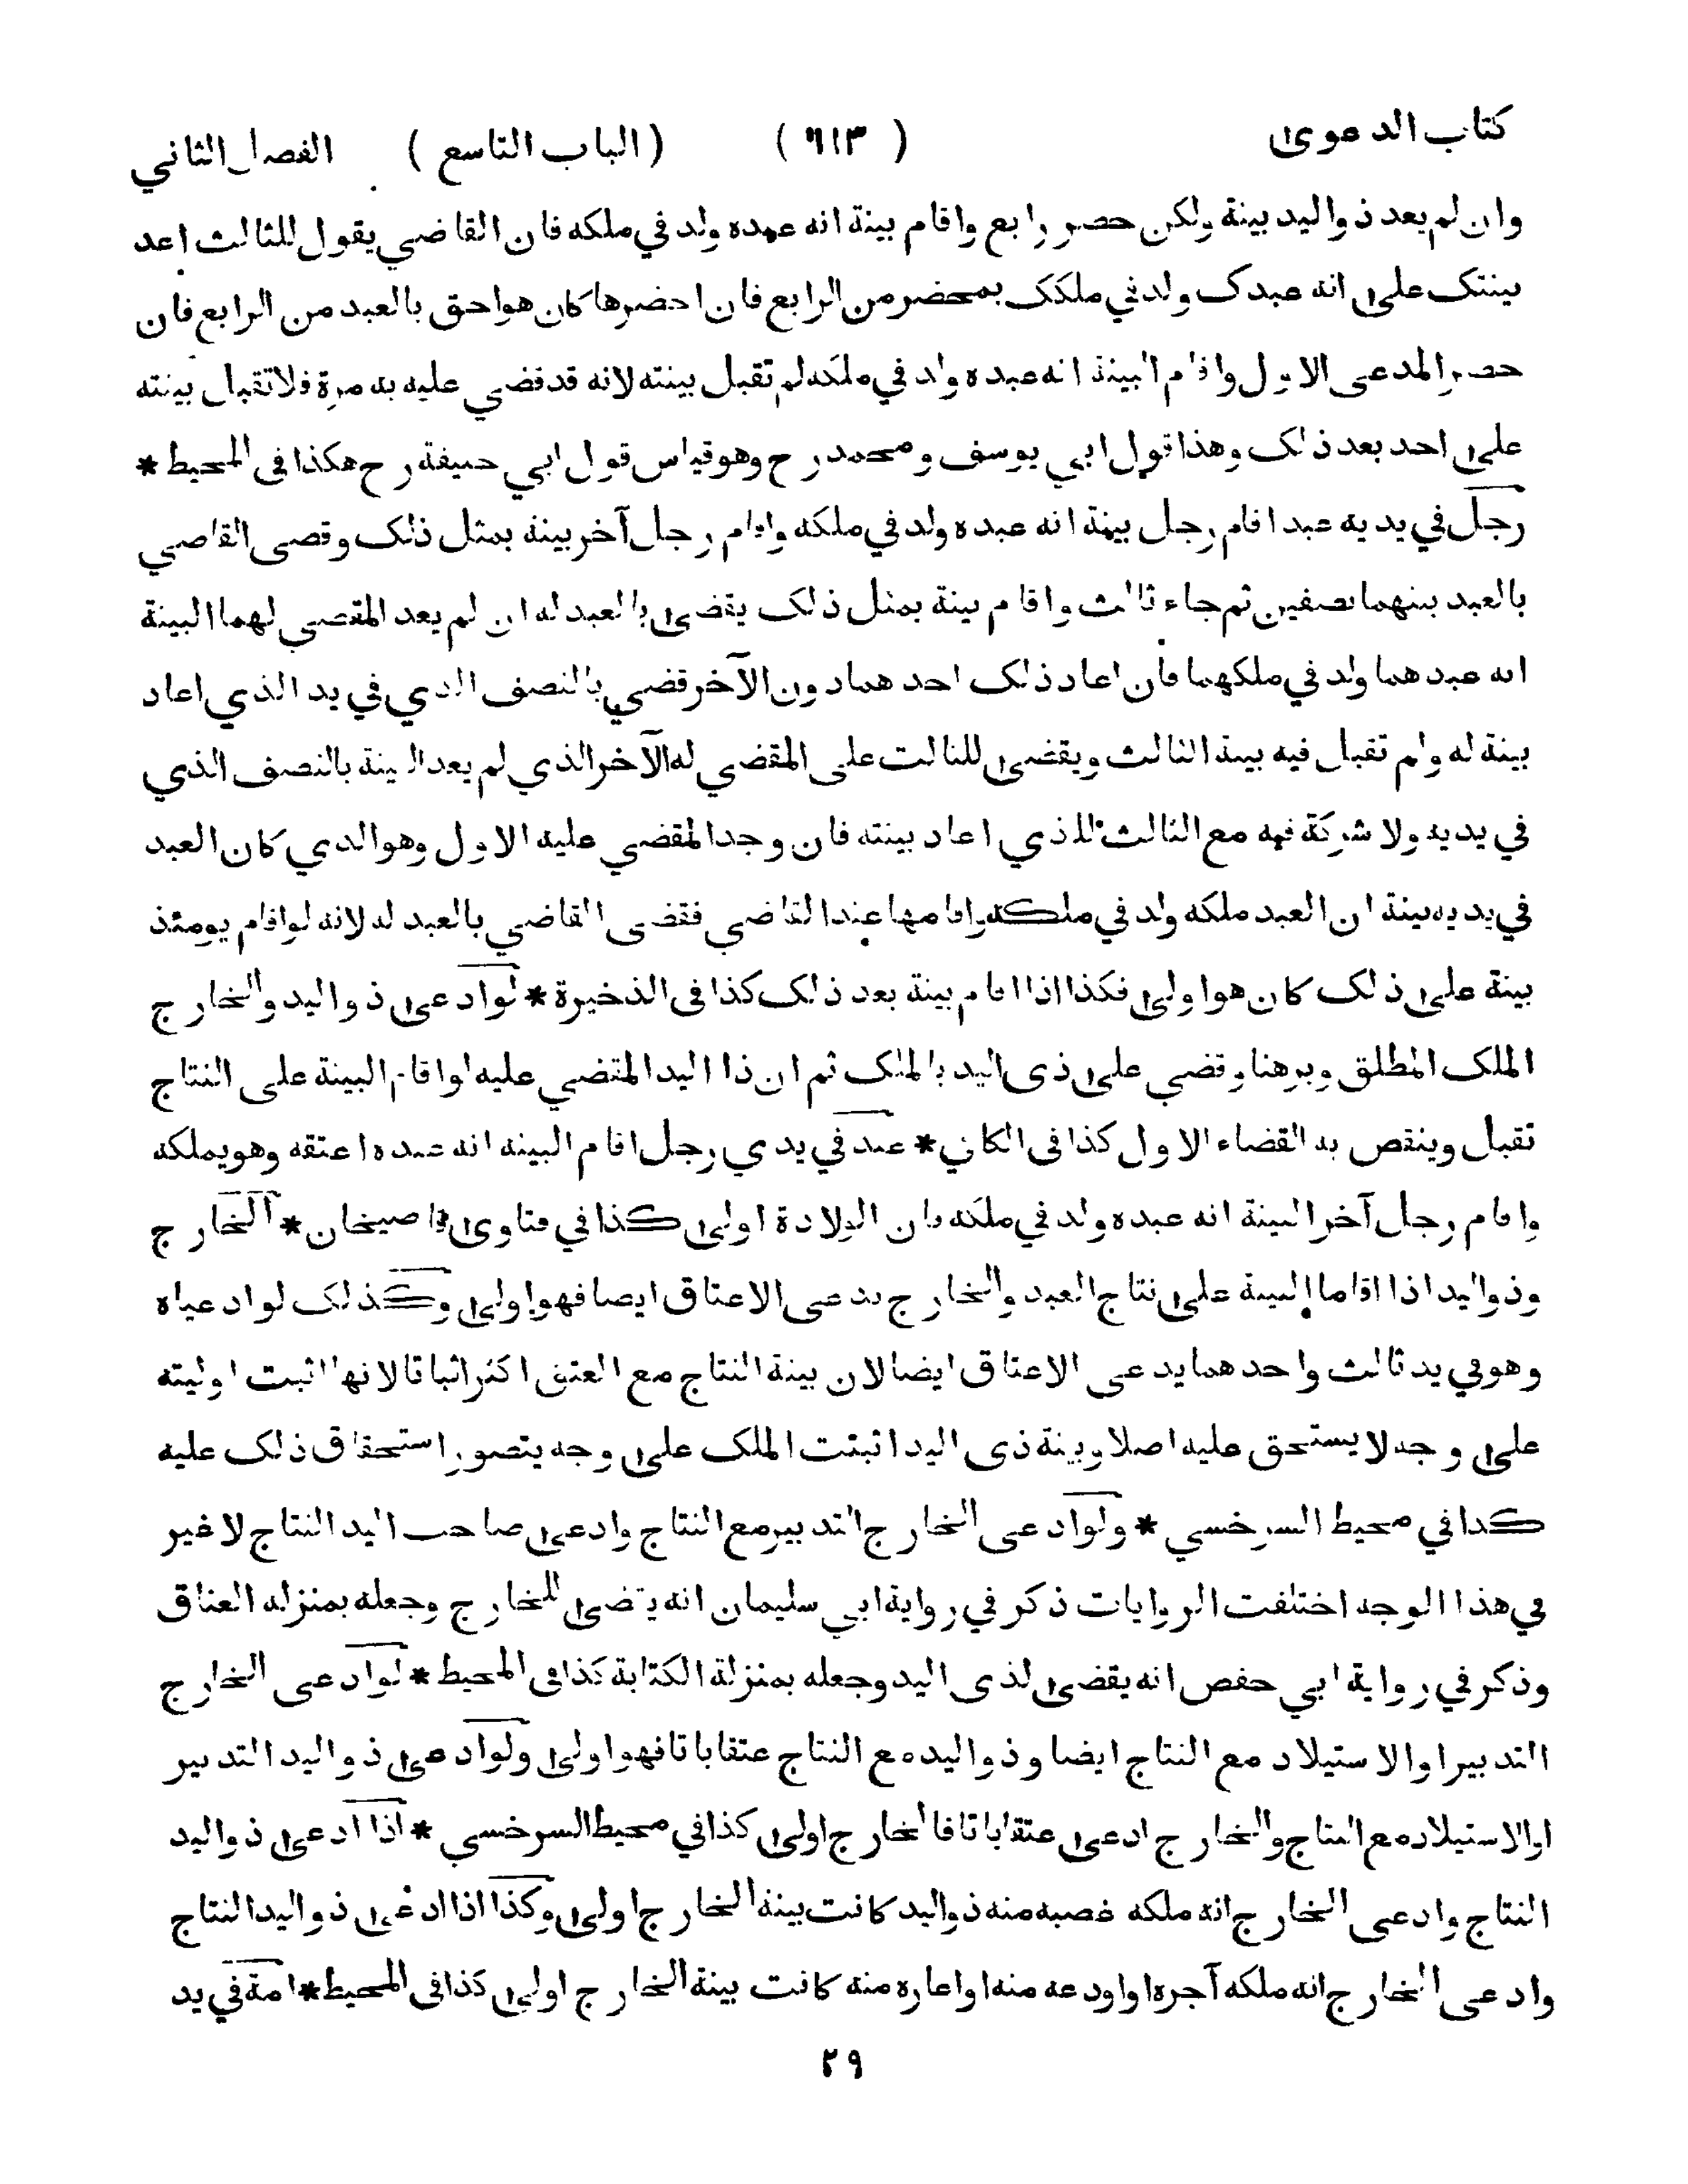 كتاب الدعوى ( ٦١٣ ) ( الباب التاسع ) الفصل الثاني
وان لم يعد ذو اليد بينة ولكن حضر رابع واقام بينة انه عبده ولد في ملكه فان القاضي يقول للثالث اعد
بينتك على انه عبدك ولد في ملكك بمحضر من الرابع فان احضرها كان هو احق بالعبد من الرابع فان
حضر المدعى الاول واقام البينة انه عبده ولد في ملكه لم تقبل بينته لانه قد قضي عليه به مرة فلا تقبل بينته
على احد بعد ذلك وهذا قول ابي يوسف ومحمد رح وهو قياس قول ابي حنيفة رح هكذا فى المحيط *
رجل في يديه عبد اقام رجل بينة انه عبده ولد في ملكه واقام رجل آخر بينة بمثل ذلك وقضى القاضي
بالعبد بينهما نصفين ثم جاء ثالث واقام بينة بمثل ذلك يقضى بالعبد له ان لم يعد المقضي لهما البينة
انه عبدهما ولد في ملكهما فان اعاد ذلك احدهما دون الآخر قضي بالنصف الذي في يد الذي اعاد
بينة له ولم تقبل فيه بينة الثالث ويقضى للثالث على المقضي له الآخر الذي لم يعد البينة بالنصف الذي
في يديه ولا شركة فيه مع الثالث للذي اعاد بينته فان وجد المقضي عليه الاول وهو الذي كان العبد
في يديه بينة ان العبد ملكه ولد في ملكه واقامها عند القاضي فقضى القاضي بالعبد له لانه لو اقام يومئذ
بينة على ذلك كان هو اولى فكذا اذا اقام بينة بعد ذلك كذا فى الذخيرة * لو ادعى ذو اليد والخارج
الملك المطلق وبرهنا وقضي على ذى اليد بالملك ثم ان ذا اليد المقضي عليه لو اقام البينة على النتاج
تقبل وينقض به القضاء الاول كذا فى الكافي * عبد في يدي رجل اقام البينة انه عبده اعتقه وهو يملكه
واقام رجل آخر البينة انه عبده ولد في ملكه فان الولادة اولى كذا في فتاوى قاضيخان * الخارج
وذو اليد اذا اقاما البينة على نتاج العبد والخارج يدعى الاعتاق ايضا فهو اولى وكذلك لو ادعياه
وهو في يد ثالث واحدهما يدعى الاعتاق ايضا لان بينة النتاج مع العتق اكثر اثباتا لانها اثبت اوليته
على وجه لا يستحق عليه اصلا وبينة ذى اليد اثبتت الملك على وجه يتصور استحقاق ذلك عليه
كذا في محيط السرخسي * ولو ادعى الخارج التدبير مع النتاج وادعى صاحب اليد النتاج لا غير
في هذا الوجه اختلفت الروايات ذكر في رواية ابي سليمان انه يقضى للخارج وجعله بمنزلة العتاق
وذكر في رواية ابي حفص انه يقضى لذى اليد وجعله بمنزلة الكتابة كذا فى المحيط * لو ادعى الخارج
التدبير او الاستيلاد مع النتاج ايضا وذو اليد مع النتاج عتقا باتا فهو اولى ولو ادعى ذو اليد التدبير
او الاستيلاد مع النتاج والخارج ادعى عتقا باتا فالخارج اولى كذا في محيط السرخسي * اذا ادعى ذو اليد
النتاج وادعى الخارج انه ملكه غصبه منه ذو اليد كانت بينة الخارج اولى وكذا اذا ادعى ذو اليد النتاج
وادعى الخارج انه ملكه آجره او اودعه منه او اعاره منه كانت بينة الخارج اولى كذا فى المحيط * امة في يد
٢٩